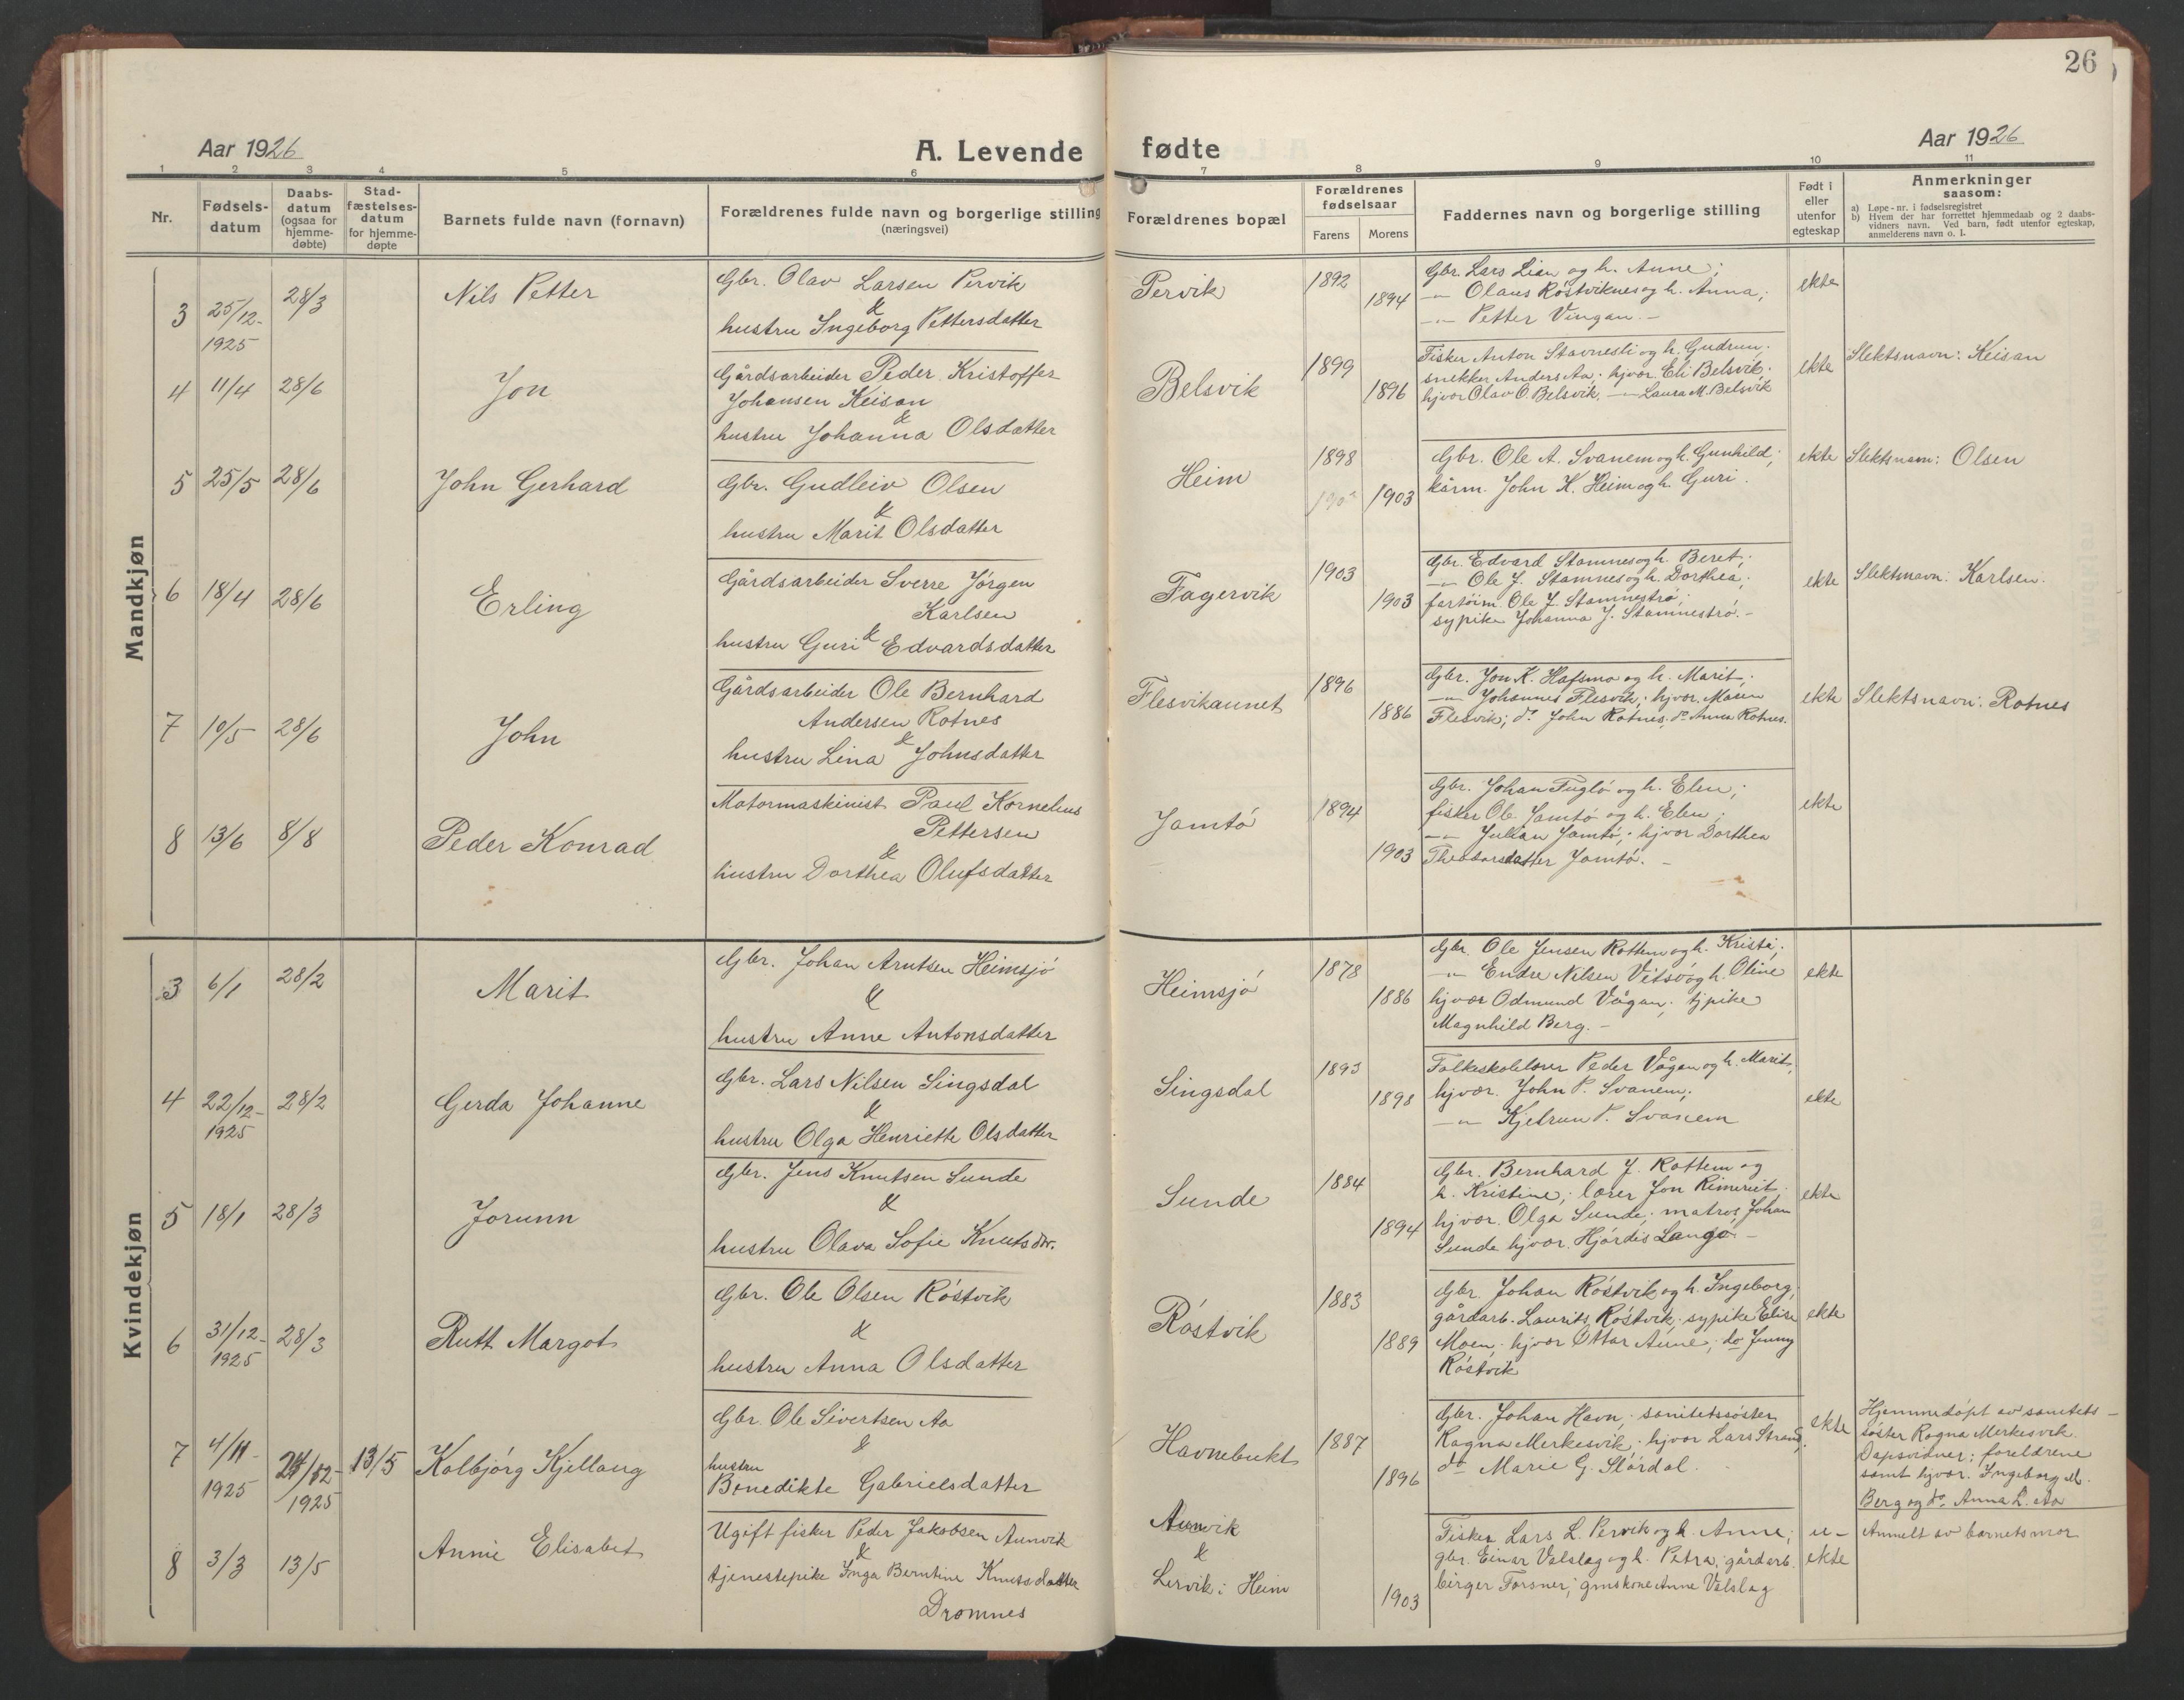 26
Aar 1926
A. Levende fødte
Aar 1926
1 2 3 4 5 6 7 8 9 10 11
Nr.
Fødselsdatum
Daabsdatum (ogsaa for hjemmedøbte)
Stadfæstelsesdatum for hjemmedøpte
Barnets fulde navn (fornavn)
Forældrenes fulde navn og borgerlige stilling (næringsvei)
Forældrenes bopæl
Forældrenes fødselsaar
Farens
Morens
Faddernes navn og borgerlige stilling
Født i eller utenfor egteskap
Anmerkninger saasom:
a) Løpe-nr. i fødselsregistret
b) Hvem der har forrettet hjemmedaab og 2 daabsvidners navn. Ved barn, født utenfor egteskap, anmelderens navn o. l.
Mandkjøn
3 25/12-1925 28/3 Nils Petter
Gbr. Olav Larsen Pervik
&
hustru Ingeborg Pettersdatter
Pervik 1892 1894
Gbr. Lars Lian og h. Anne;
-"- Olaus Röstviknes og h. Anna;
-"- Petter Vingan. -
ekte
4 11/4 28/6 Jon
Gårdsarbeider Peder Kristoffer
Johansen Keisan
&
hustru Johanna Olsdatter
Belsvik 1899 1896
Fisker Anton Stavnesli og h. Gudrun;
snekker Anders Aa; hjvor. Eli Belsvik;
hjvor Olav O. Belsvik, -"- Laura M. Belsvik
ekte
Slektsnavn: Keisan
5 25/5 28/6 John Gerhard
Gbr. Gudleiv Olsen
&
hustru Marit Olsdatter
Heim 1898 1903
Gbr. Ole A. Svanem og h. Gunhild;
kårm. John K. Heim og h. Guri.
ekte
Slektsnavn: Olsen
6 18/4 28/6 Erling
Gårdsarbeider Sverre Jörgen
Karlsen
&
hustru Guri Edvardsdatter
Fagervik 1903 1903
Gbr. Edvard Stamnes og h. Beret;
-"- Ole J. Stamnes og h. Dorthea;
fartöim. Ole J. Stamnestrø;
sypike Johanna J. Stamneströ. -
ekte
Slektsnavn: Karlsen.
7 10/5 28/6 John
Gårdsarbeider Ole Bernhard
Andersen Rotnes
&
hustru Lina Johnsdatter
Flesvikaunet 1896 1886
Gbr. Jon K. Hafsmo og h. Marit;
-"- Johannes Flesvik; hjvor. Maren
Flesvik; do John Rotnes, do Anna Rotnes.
ekte
Slektsnavn: Rotnes
8 13/6 8/8 Peder Konrad
Motormaskinist Paul Kornelius
Pettersen
&
hustru Dorthea Olufsdatter
Jamtö 1894 1903
Gbr. Johan Fuglö og h. Elen;
fisker Ole Jamtö og h. Elen;
-"- Julian Jamtö; hjvor Dorthea
Theodorsdatter Jamtö. -
ekte
Kvindekjøn
3 6/1 28/2 Marit
Gbr. Johan Arntsen Heimsjö
&
hustru Anne Antonsdatter
Heimsjö 1878 1886
Gbr. Ole Jensen Rottem og h. Kristi;
-"- Endre Nilsen Vitsö og h. Oline
hjvor Odmund Vågan; tjpike
Magnhild Berg. -
ekte
4 22/12-1925 28/2 Gerda Johanne
Gbr. Lars Nilsen Singsdal
&
hustru Olga Henriette Olsdatter
Singsdal 1893 1898
Folkeskolelærer Peder Vågan og h. Marit;
hjvor. John P. Svanem;
-"- Kjetrun P. Svanem
ekte
5 18/1 28/3 Jorunn
Gbr. Jens Knutsen Sunde
&
hustru Olava Sofie Knutsdtr.
Sunde 1884 1894
Gbr. Bernhard J. Rottem og
h. Kristine; lærer Jon
hjvor. Olga Sunde; matros Johan
Sunde hjvor. Hjördis Langö -
ekte
6 31/12-1925 28/3 Rutt Margot
Gbr. Ole Olsen Röstvik
&
hustru Anna Olsdatter
Röstvik 1883 1889
Gbr. Johan Röstvik og h. Ingeborg;
gårdarb. Laurits Röstvik; sypike Elise
Moen; hjvor Ottar Aune; do Jenny
Röstvik
ekte
7 4/11-1925 24/12-1925 13/5 Kolbjörg Kjellaug
Gbr. Ole Sivertsen Aa
&
hustru
Benedikte Gabrielsdatter
Havnebukt 1887 1896
Gbr. Johan Havn; sanitetssöster
Ragna Merkesvik; hjvor Lars Strand;
do Marie G. Slördal.
ekte
Hjemmedöpt av sanitets-
söster Ragna Merkesvik.
Dapsvidner: foreldrene
samt hjvor. Ingeborg M.
Berg og do Anna L. Aa
8 3/3 13/5 Annie Elisabet
Ugift fisker Peder Jakobsen Aunvik
&
tjenestepike Inga Berntine Knutsdatter
Dromnes
Aunvik
&
Lervik i Heim
1903
Fisker Lars L. Pervik og h. Anne;
gbr. Einar Valslag og h. Petra; gårdarb.
birger Forsner; gmskone Anne Valslag
u-
ekte
Anmelt av barnets mor